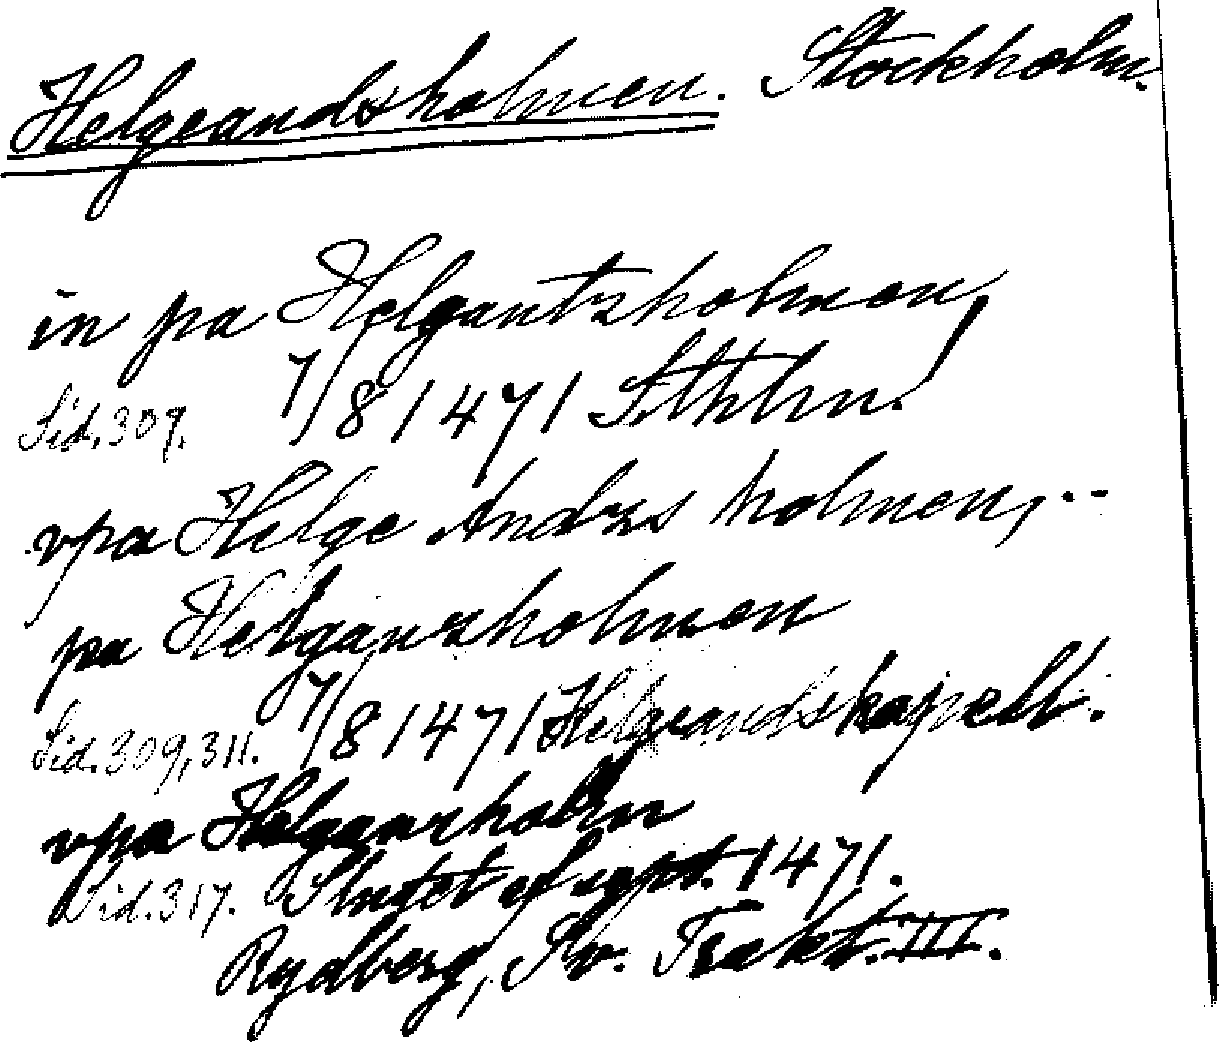 Helgeandsholmen. Stockholm.
in pa Helgantzholmen,
Sid. 309. 7/8 1471 Sthlm.
vpa Helge Andzs holmen, ..
pa Helganzholmen
Sid. 309, 311. 7/8 1471 Helgeandskapell.
vpa Helganzholm
Sid. 317. Slutet af sept. 1471.
Rydberg, Sv. Trakt. III.